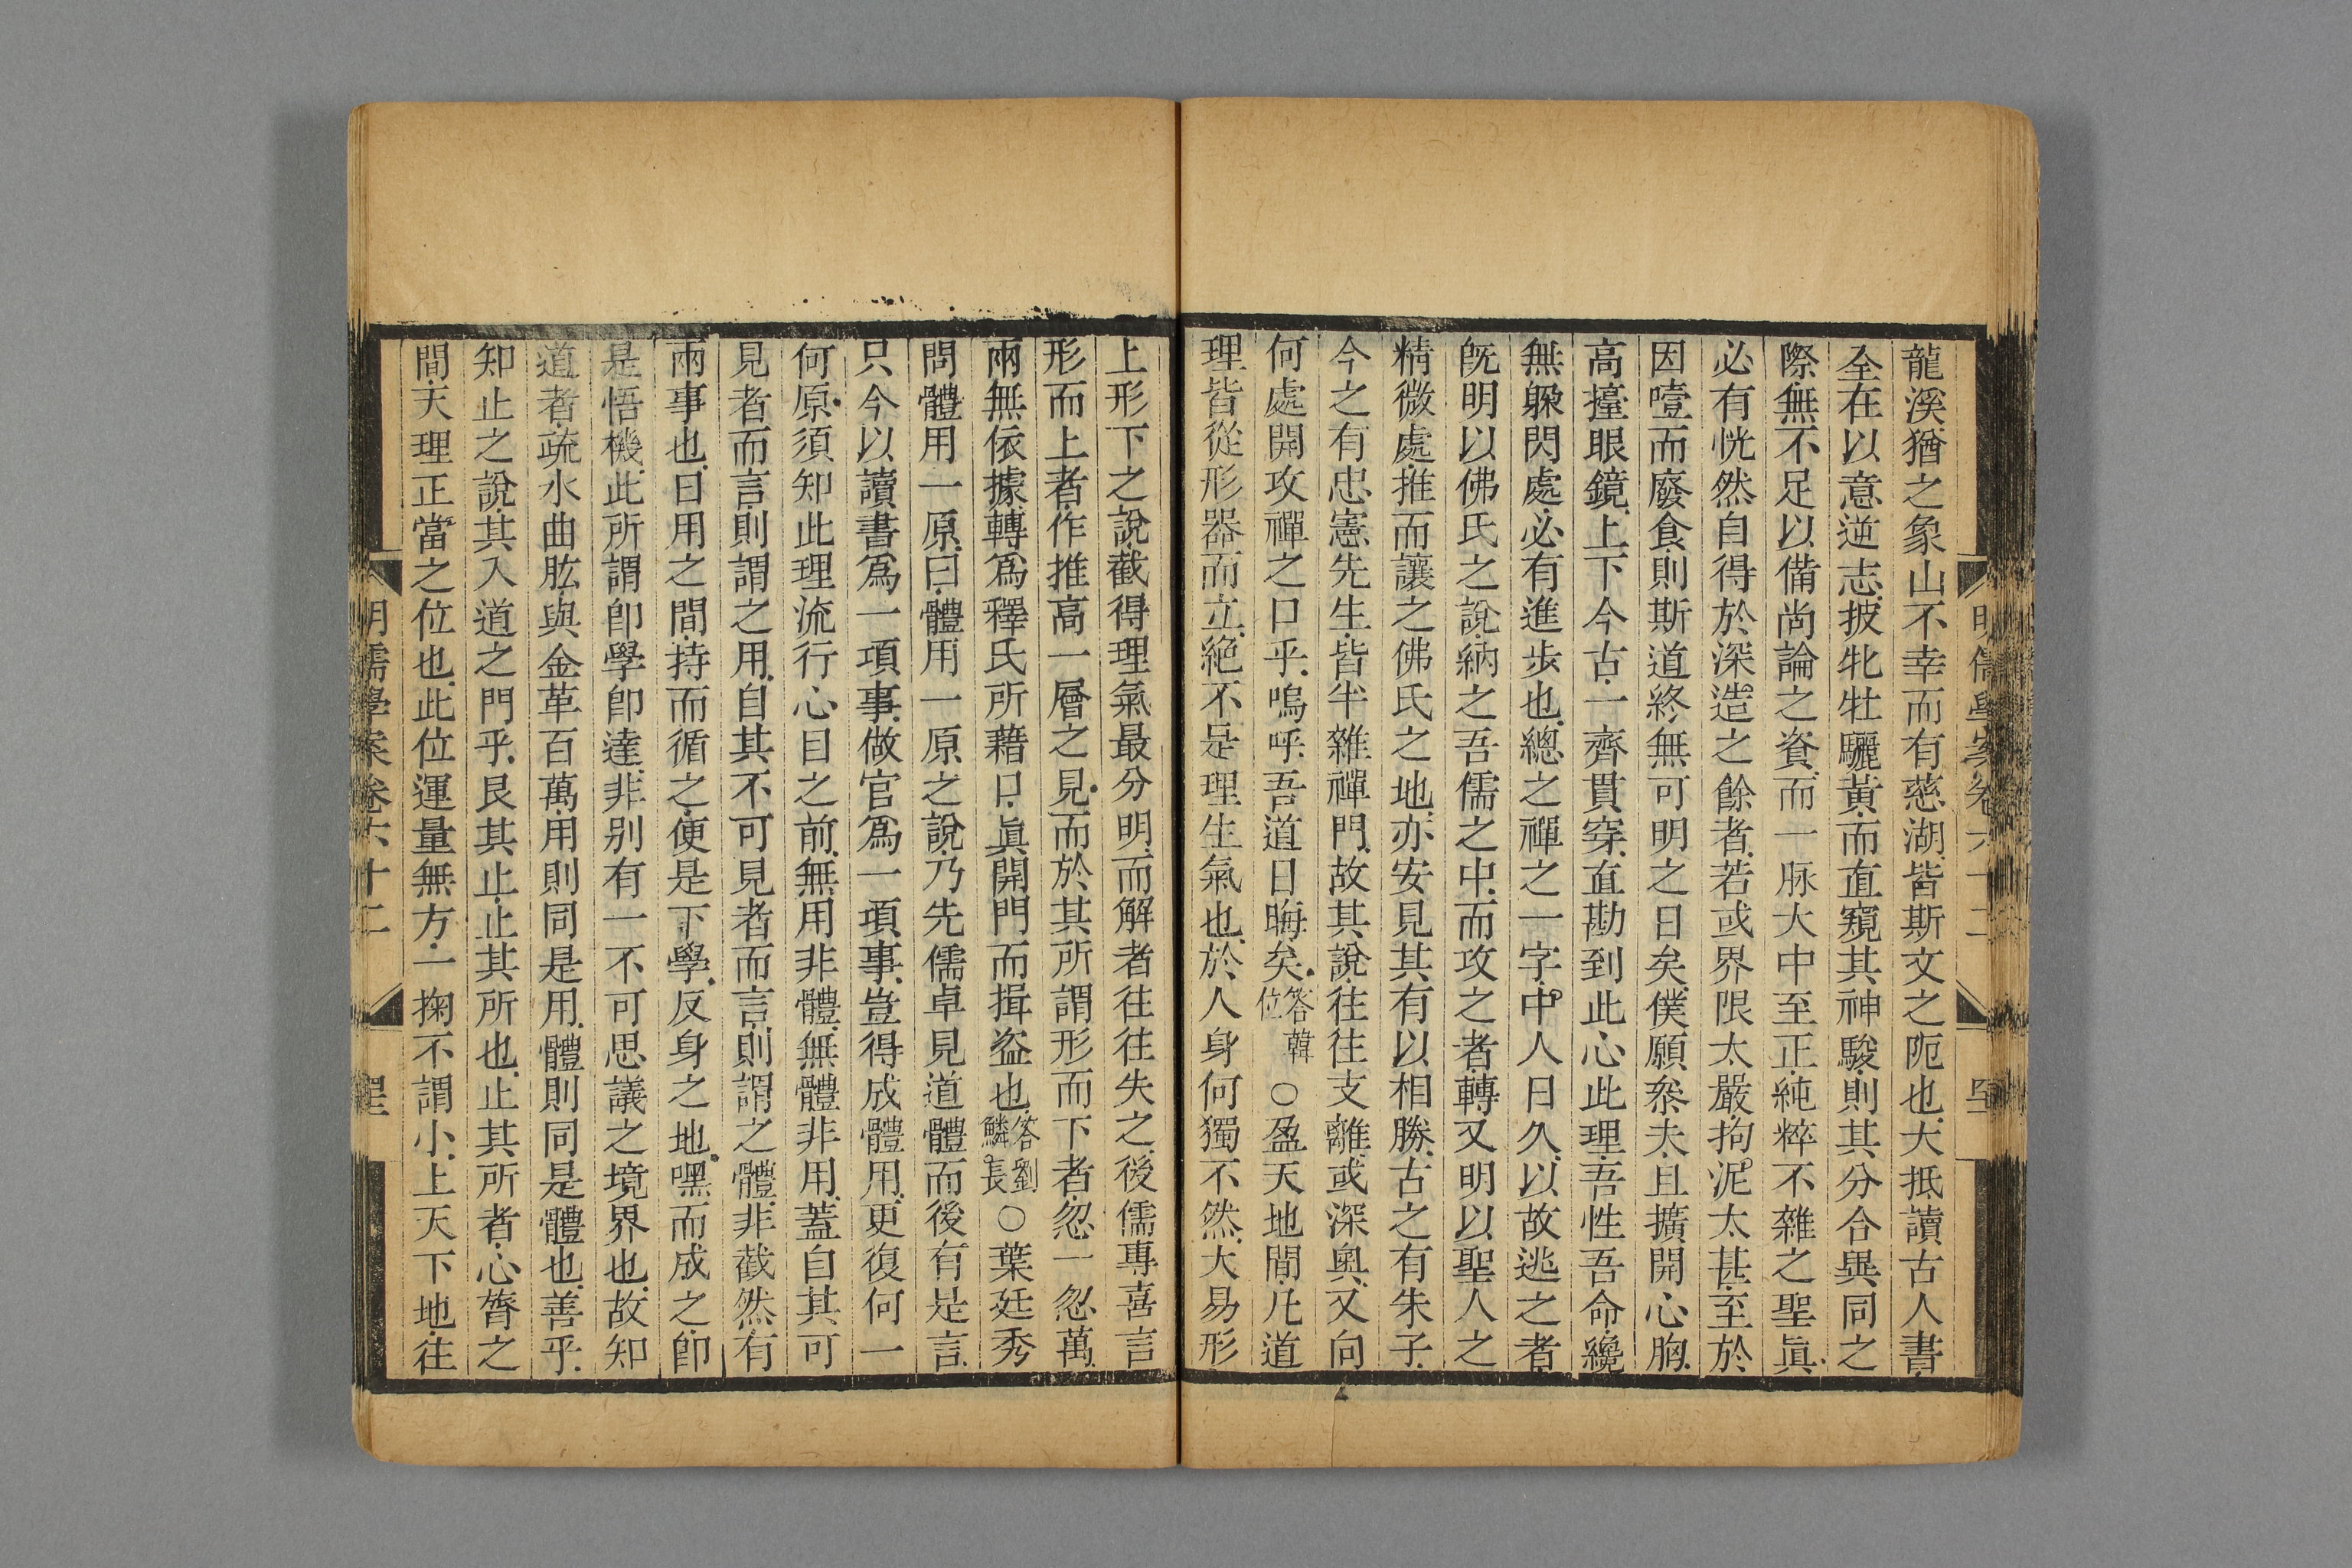 明儒學案卷六十二
龍溪猶之象山不幸而有慈湖皆斯文之阨也大抵讀古人書
全在以意逆志披牝牡驪黃而直窺其神駿則其分合異同之
際無不足以備尚論之資而一脉大中至正純粹不雜之聖眞
必有恍然自得於深造之餘者若或界限太嚴拘泥太甚至於
因噎而廢食則斯道終無可明之日矣僕願叅夫且擴開心胸
高擡眼鏡上下今古一齊貫穿直勘到此心此理吾性吾命纔
無躱閃處必有進步也總之禪之一字中人日久以故逃之者
旣明以佛氏之說納之吾儒之中而攻之者轉又明以聖人之
精微處推而讓之佛氏之地亦安見其有以相勝古之有朱子
今之有忠憲先生皆半雜禪門故其說往往支離或深奧又向
何處開攻禪之口乎嗚呼吾道日晦矣答韓位○盈天地間凡道
理皆從形器而立絕不是理生氣也於人身何獨不然大易形
上形下之說截得理氣最分明而解者往往失之後儒專喜言
形而上者作推高一層之見而於其所謂形而下者忽一忽萬
兩無依據轉爲釋氏所藉口眞開門而揖盜也答劉鱗長○葉廷秀
問體用一原曰體用一原之說乃先儒卓見道體而後有是言
只今以讀書爲一項事做官爲一項事豈得成體用更復何一
何原須知此理流行心目之前無用非體無體非用蓋自其可
見者而言則謂之用自其不可見者而言則謂之體非截然有
兩事也日用之間持而循之便是下學反身之地嘿而成之卽
是悟機此所謂卽學卽達非別有一不可思議之境界也故知
道者疏水曲肱與金革百萬用則同是用體則同是體也善乎
知止之說其入道之門乎艮其止止其所也止其所者心膂之
間天理正當之位也此位運量無方一掬不謂小上天下地往
明儒學案卷六十二